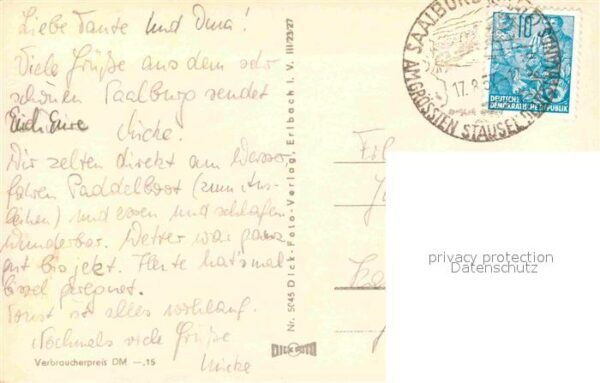 Liebe Tante und Oma!
Viele Grüße aus dem sehr
schönen Saalburg sendet
Euch Eure Micke.
Wir zelten direkt am Wasser
fahren Paddelboot (zum Aus-
leihen) und essen und schlafen
wunderbar. Wetter war ganz
gut bis jetzt. Heute hat's mal
bissel geregnet.
Sonst ist alles wohlauf.
Nochmals viele Grüße
Micke
Verbraucherpreis DM —,15
Nr. 5045 Dick-Foto-Verlag, Erlbach i. V. III/23/27
DICK FOTO
SAALBURG
AM GRÖSSTEN STAUSEE
17.8.5
10
DEUTSCHE
DEMOKRATISCHE REPUBLIK
privacy protection
Datenschutz